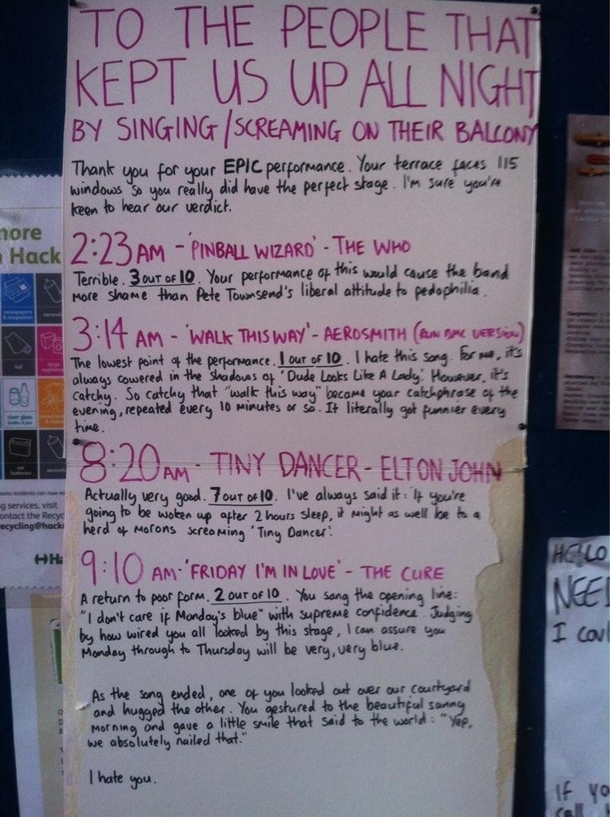 TO THE PEOPLE THAT
KEPT US UP ALL NIGHT
BY SINGING/SCREAMING ON THEIR BALCONY
Thank you for your EPIC performance. Your terrace faces 115
windows so you really did have the perfect stage. I'm sure you're
keen to hear our verdict.
2:23 AM - 'PINBALL WIZARD' - THE WHO
Terrible. 3 OUT OF 10. Your performance of this would cause the band
more shame than Pete Townsend's liberal attitude to pedophilia.
3:14 AM - 'WALK THIS WAY' - AEROSMITH (RUN DMC VERSION)
The lowest point of the performance. 1 OUT OF 10. I hate this song. For me, it's
always cowered in the shadows of 'Dude Looks Like A Lady'. However, it's
catchy. So catchy that "walk this way" became your catchphrase of the
evening, repeated every 10 minutes or so. It literally got funnier every
time.
8:20 AM - TINY DANCER - ELTON JOHN
Actually very good. 7 OUT OF 10. I've always said it: If you're
going to be woken up after 2 hours sleep, it might as well be to a
herd of morons screaming 'Tiny Dancer'.
9:10 AM - 'FRIDAY I'M IN LOVE' - THE CURE
A return to poor form. 2 OUT OF 10. You sang the opening line:
"I don't care if Monday's blue" with supreme confidence. Judging
by how wired you all looked by this stage, I can assure you
Monday through to Thursday will be very, very blue.
As the song ended, one of you looked out over our courtyard
and hugged the other. You gestured to the beautiful sunny
morning and gave a little smile that said to the world: "Yep,
we absolutely nailed that."
I hate you.
more
Hack
ng services, visit
contact the Recyc
ecycling@hack
Ha
HELLO
NEE
I cou
If yo
call